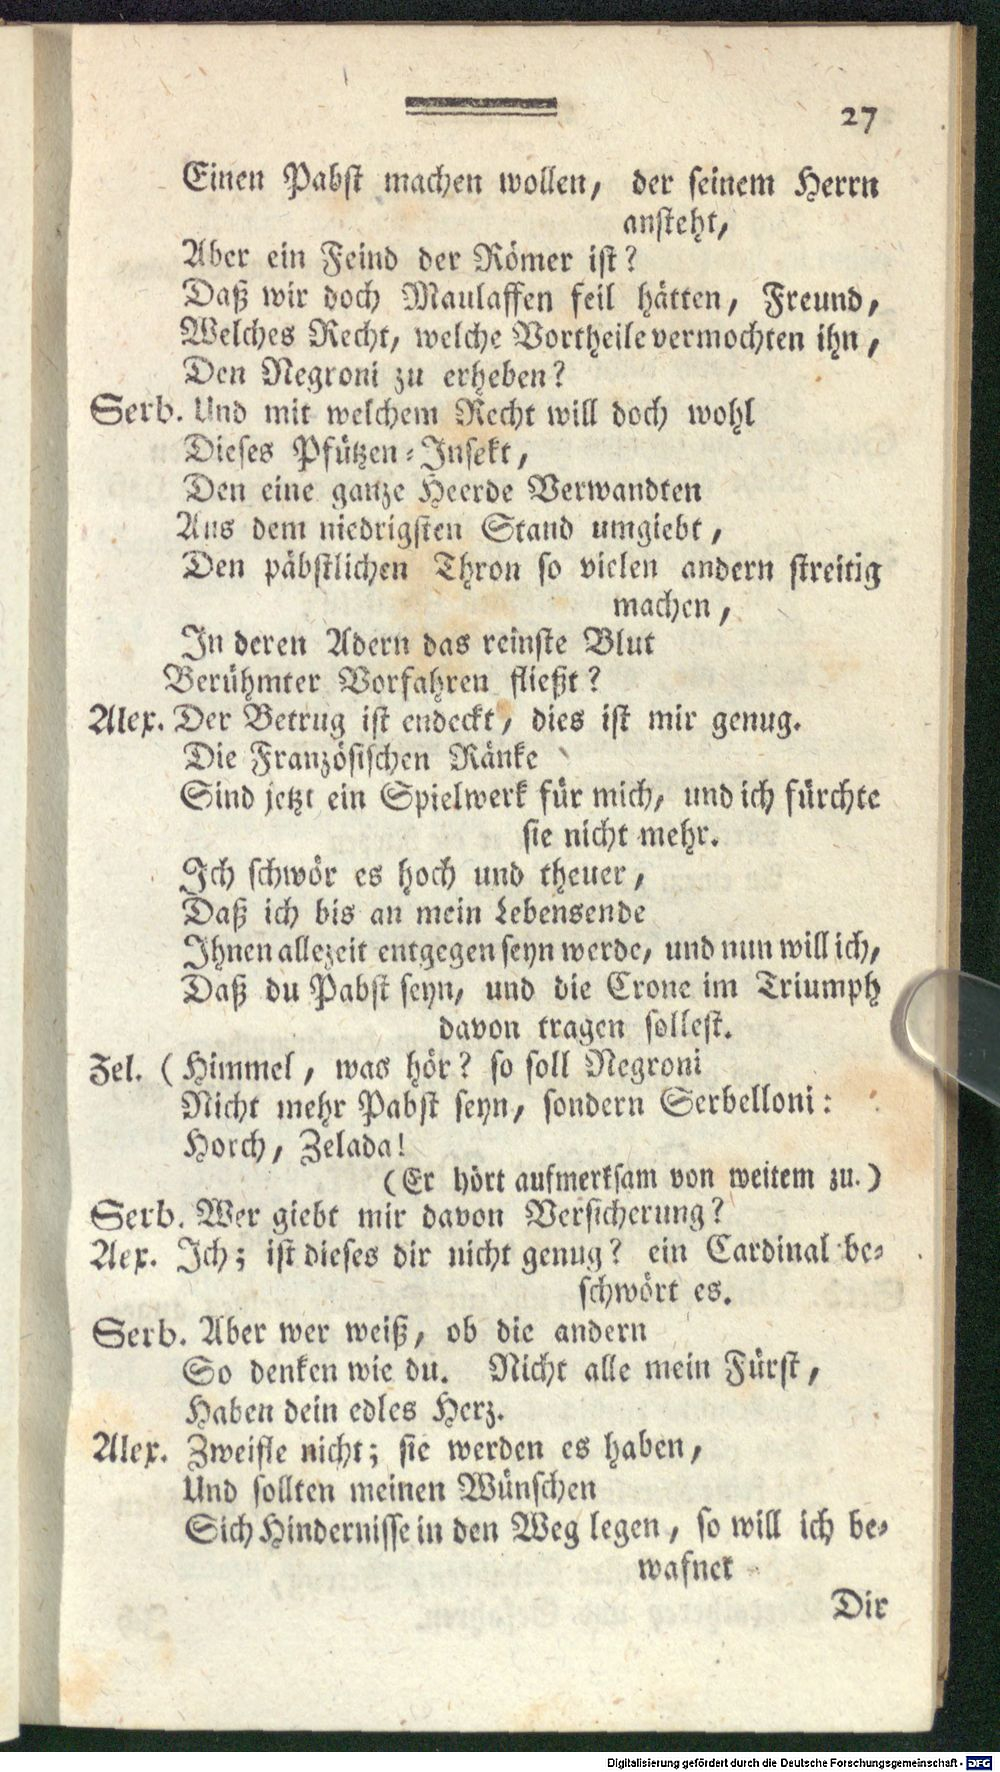 27
Einen Pabst machen wollen, der seinem Herrn
ansteht,
Aber ein Feind der Römer ist?
Daß wir doch Maulaffen feil hätten, Freund,
Welches Recht, welche Vortheile vermochten ihn,
Den Negroni zu erheben?
Serb. Und mit welchem Recht will doch wohl
Dieses Pfützen-Insekt,
Den eine ganze Heerde Verwandten
Aus dem niedrigsten Stand umgiebt,
Den päbstlichen Thron so vielen andern streitig
machen,
In deren Adern das reinste Blut
Berühmter Vorfahren fließt?
Alex. Der Betrug ist endeckt, dies ist mir genug.
Die Französischen Ränke
Sind jetzt ein Spielwerk für mich, und ich fürchte
sie nicht mehr.
Ich schwör es hoch und theuer,
Daß ich bis an mein Lebensende
Ihnen allezeit entgegen seyn werde, und nun will ich,
Daß du Pabst seyn, und die Crone im Triumph
davon tragen sollest.
Zel. (Himmel, was hör? so soll Negroni
Nicht mehr Pabst seyn, sondern Serbelloni:
Horch, Zelada!
(Er hört aufmerksam von weitem zu.)
Serb. Wer giebt mir davon Versicherung?
Aex. Ich; ist dieses dir nicht genug? ein Cardinal be-
schwört es.
Serb. Aber wer weiß, ob die andern
So denken wie du. Nicht alle mein Fürst,
Haben dein edles Herz.
Alex. Zweifle nicht; sie werden es haben,
Und sollten meinen Wünschen
Sich Hindernisse in den Weg legen, so will ich be-
wafnet
Dir
Digitalisierung gefördert durch die Deutsche Forschungsgemeinschaft - DFG